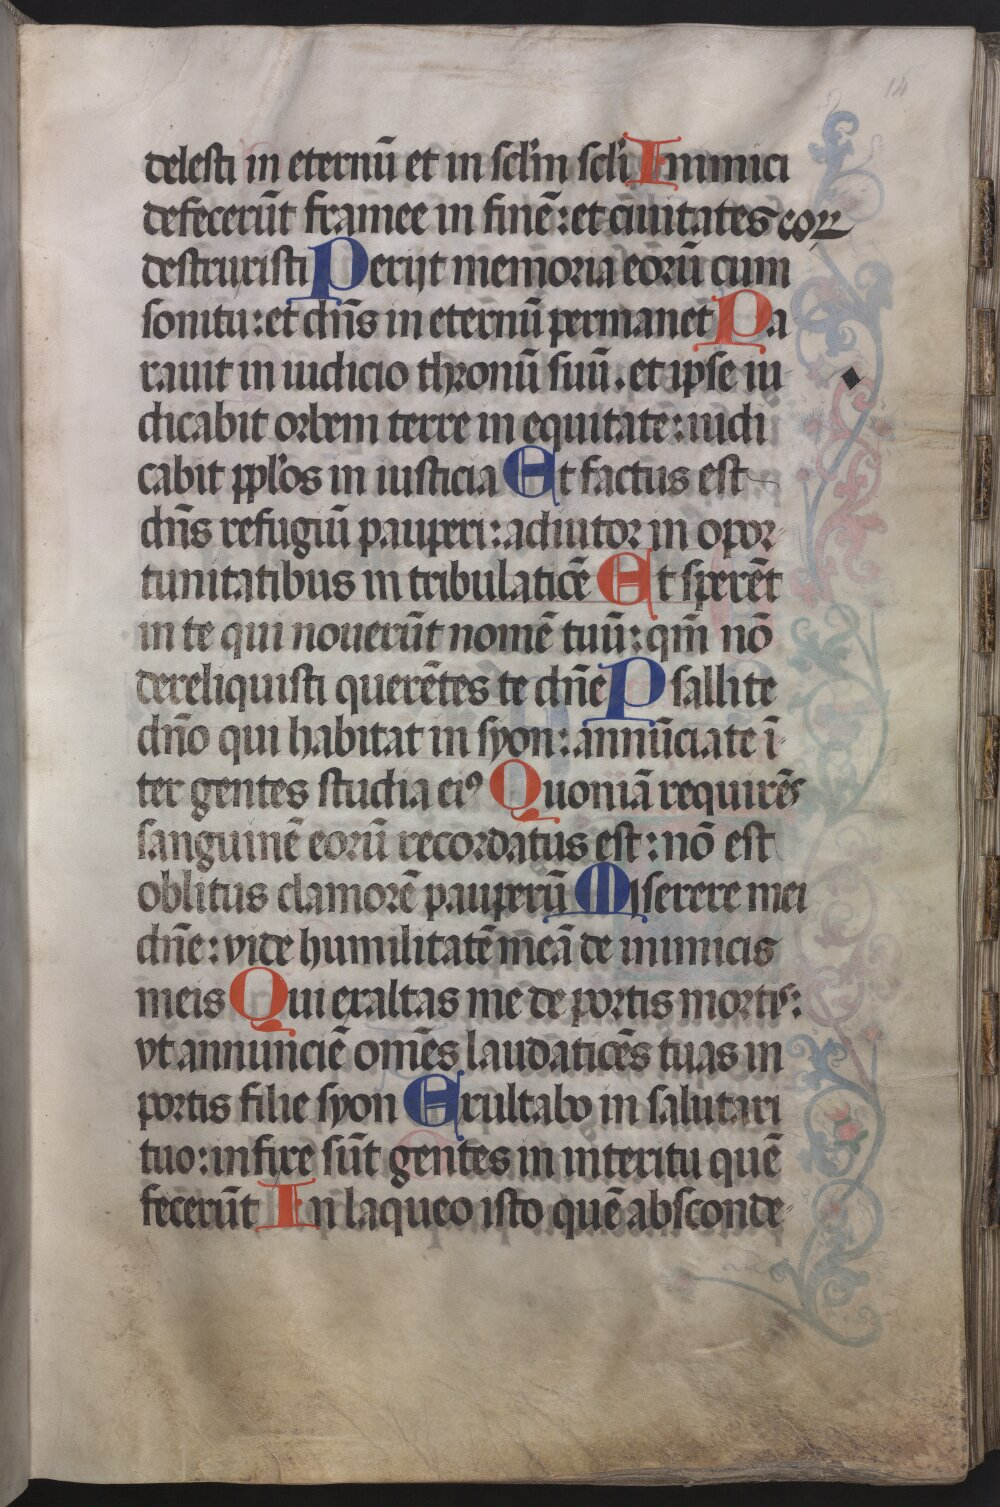 14
delesti in eternū et in scl'm scl'i Inimici
defecerūt framee in finē: et ciuitates eoꝝ
destruxisti Perijt memoria eorū cum
sonitu: et dn̄s in eternū permanet Pa
rauit in iudicio thronū suū. et ipse iu
dicabit orbem terre in equitate: iudi
cabit ppl'os in iusticia Et factus est
dn̄s refugiū pauperi: adiutor in opor-
tunitatibus in tribulatiōe Et sperēt
in te qui nouerūt nomē tuū: qm̄ nō
dereliquisti querētes te dn̄e Psallite
dn̄o qui habitat in syon: annūciate ī-
ter gentes studia eiꝰ Quoniā requirēs
sanguinē eorū recordatus est: nō est
oblitus clamorē pauperū Miserere mei
dn̄e: vide humilitatē meā de inimicis
meis Qui exaltas me de portis mortis:
vt annunciē omēs laudatiōes tuas in
portis filie syon Exultabo in salutari
tuo: infixe sūt gentes in interitu quē
fecerūt In laqueo isto quē absconde-